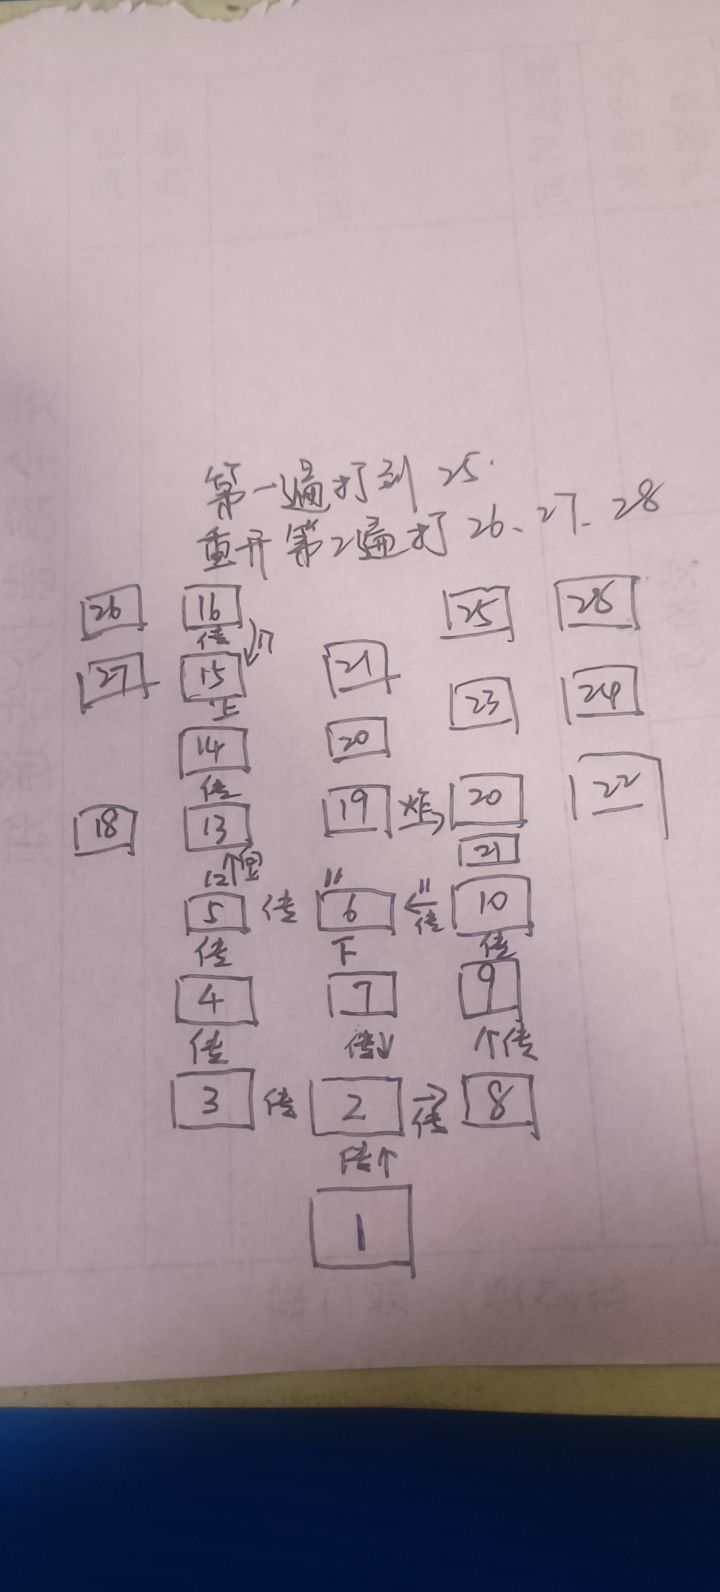 第一遍打到 25.
重开第2遍打26、27、28
26 16 25 28
传 17
27 15 21 23 24
上
14 20
传
18 13 19 炸 20 22
21
12个
11 11
5 传 6 传 10
传 下 传
4 7 9
传 传↓ ↑传
3 传 2 → 传 8
传↑
1